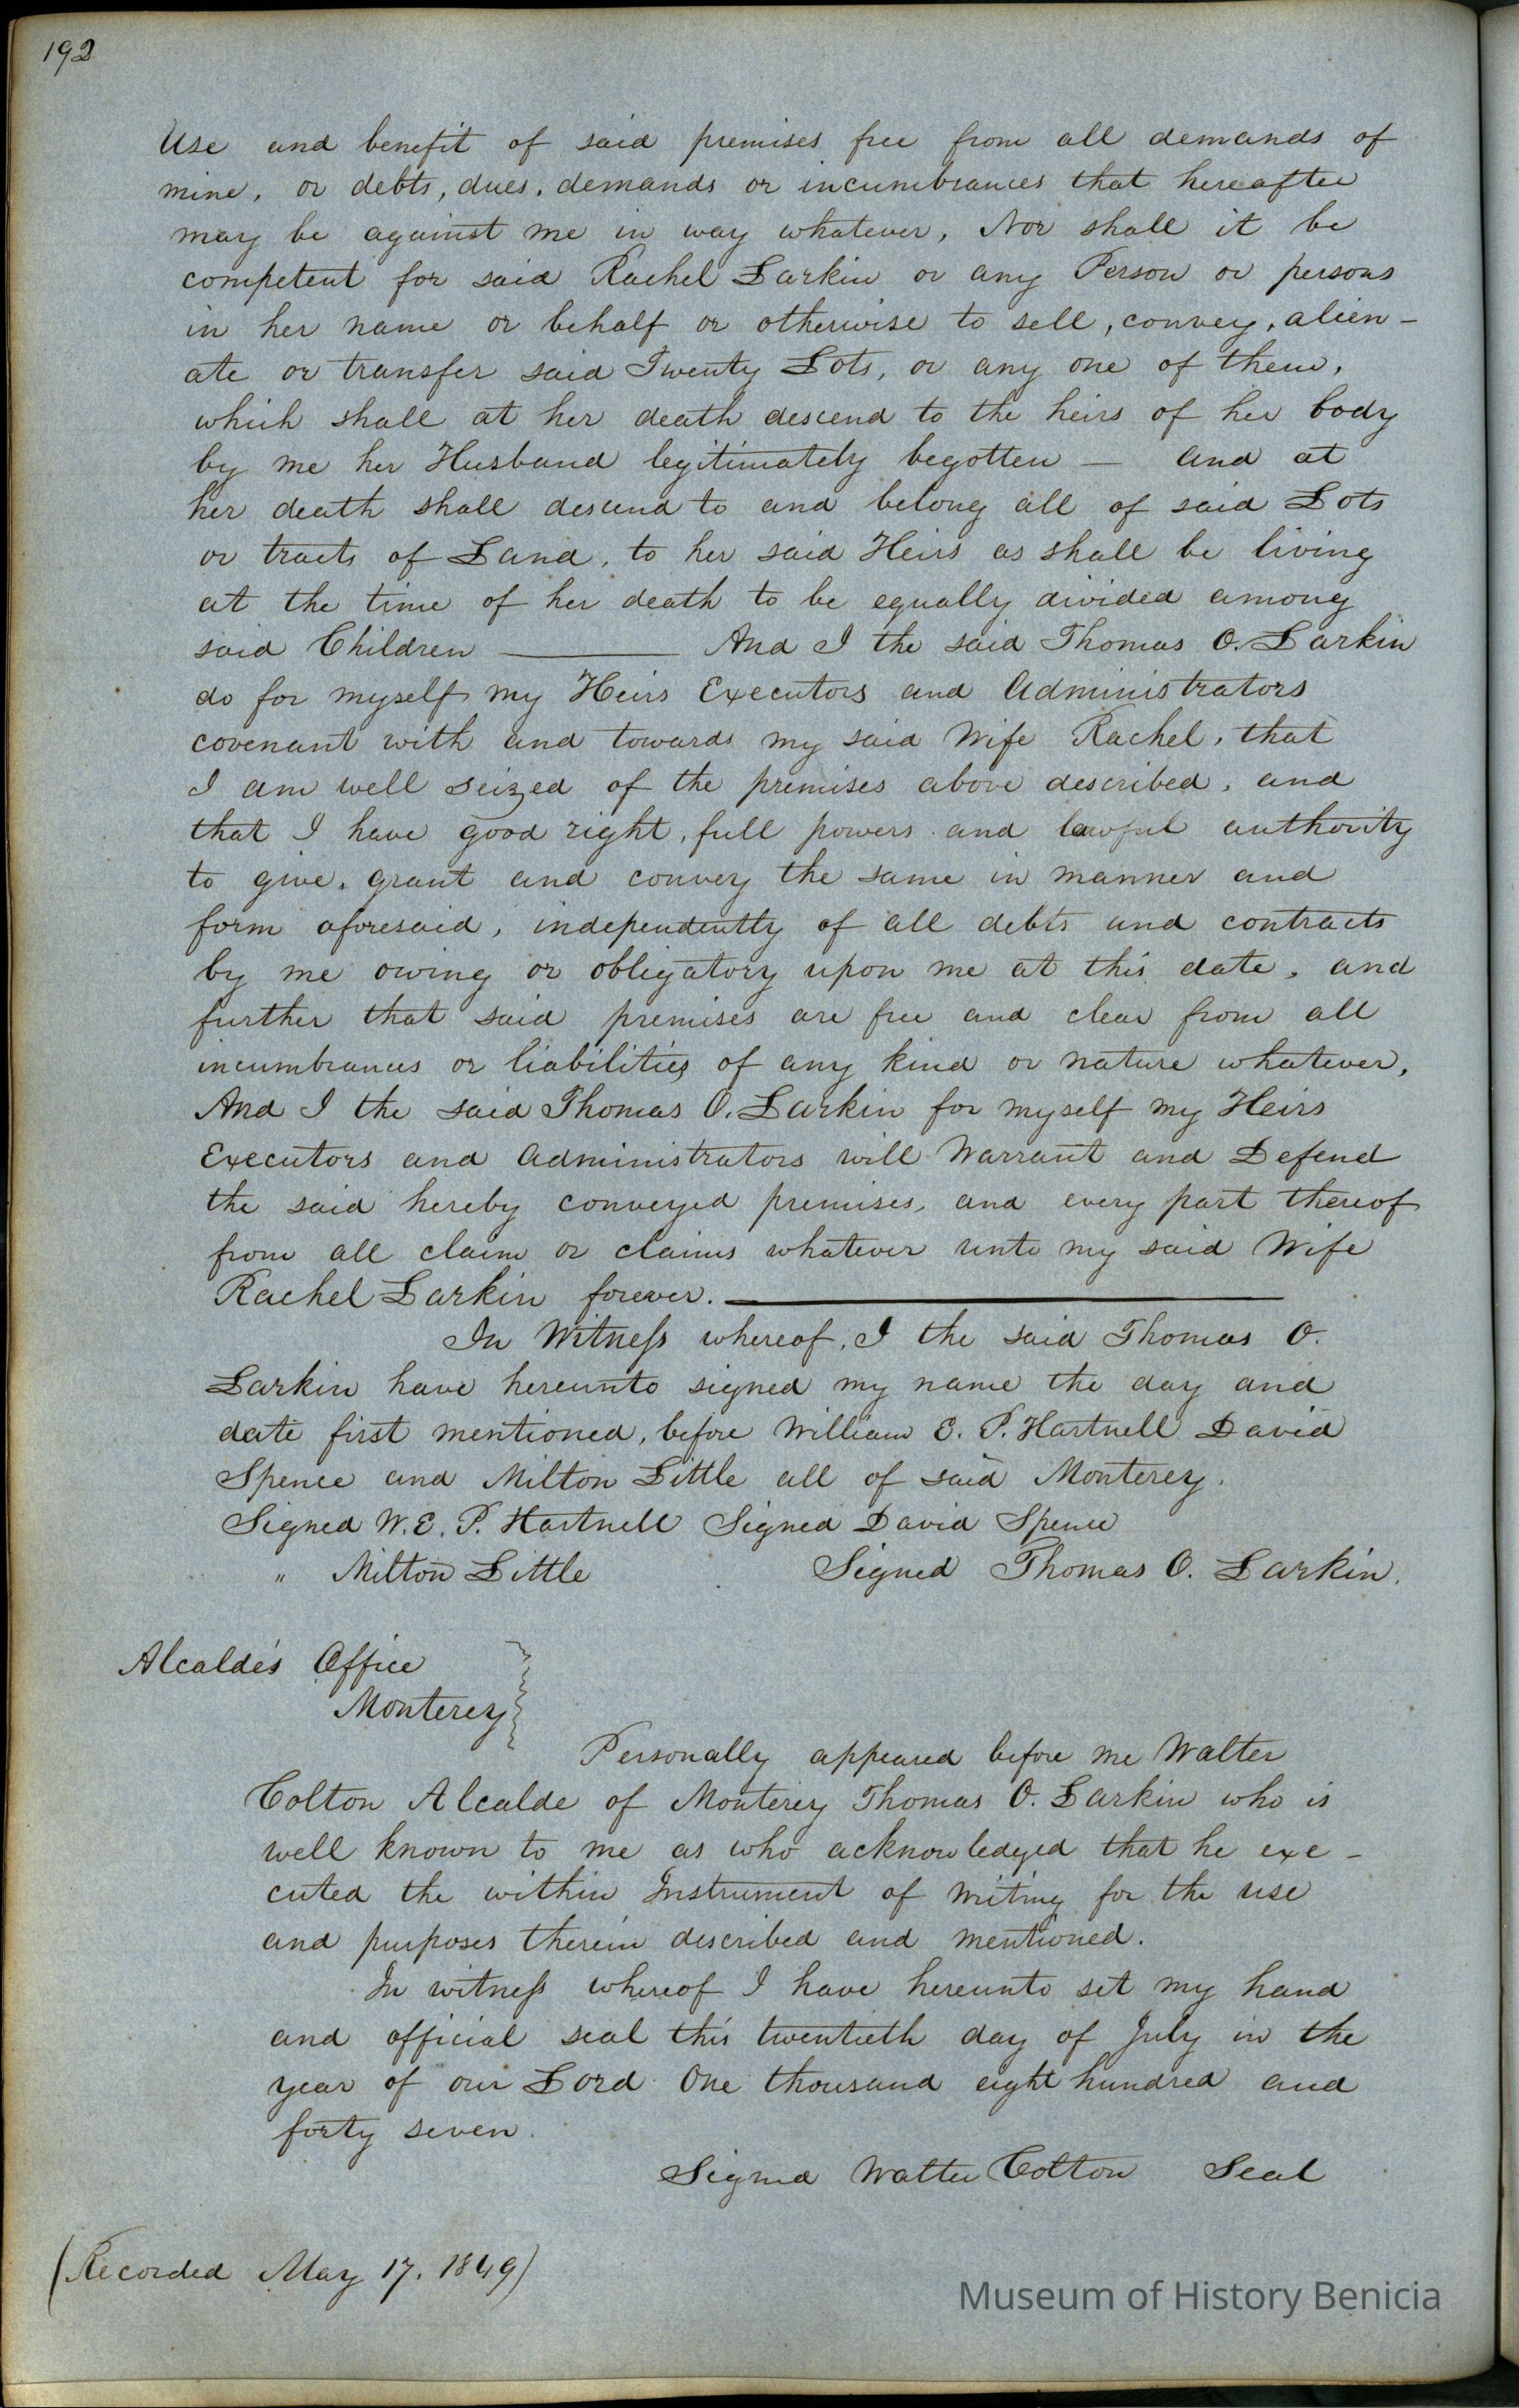 192
Use and benefit of said premises free from all demands of
mine, or debts, dues, demands or incumbrances that hereafter
may be against me in way whatever, Nor shall it be
competent for said Rachel Larkin or any Person or persons
in her name or behalf or otherwise to sell, convey, alien-
ate or transfer said Twenty Lots, or any one of them,
which shall at her death descend to the heirs of her body
by me her Husband legitimately begotten — and at
her death shall descend to and belong all of said Lots
or tracts of Land, to her said Heirs as shall be living
at the time of her death to be equally divided among
said Children ——— And I the said Thomas O. Larkin
do for myself my Heirs Executors and Administrators
covenant with and towards my said Wife Rachel, that
I am well seized of the premises above described, and
that I have good right, full powers and lawful authority
to give, grant and convey the same in manner and
form aforesaid, independently of all debts and contracts
by me owing or obligatory upon me at this date, and
further that said premises are free and clear from all
incumbrances or liabilities of any kind or nature whatever,
And I the said Thomas O. Larkin for myself my Heirs
Executors and Administrators will Warrant and Defend
the said hereby conveyed premises, and every part thereof
from all claim or claims whatever unto my said Wife
Rachel Larkin forever. ———
In Witness whereof, I the said Thomas O.
Larkin have hereunto signed my name the day and
date first mentioned, before William E. P. Hartnell David
Spence and Milton Little all of said Monterey.
Signed W. E. P. Hartnell Signed David Spence
" Milton Little Signed Thomas O. Larkin.
Alcalde's Office
Monterey
Personally appeared before me Walter
Colton Alcalde of Monterey Thomas O. Larkin who is
well known to me as who acknowledged that he exe-
cuted the within Instrument of writing for the use
and purposes therein described and mentioned.
In witness whereof I have hereunto set my hand
and official seal this twentieth day of July in the
year of our Lord One thousand eight hundred and
forty seven.
Signed Walter Colton Seal
(Recorded May 17, 1849)
Museum of History Benicia